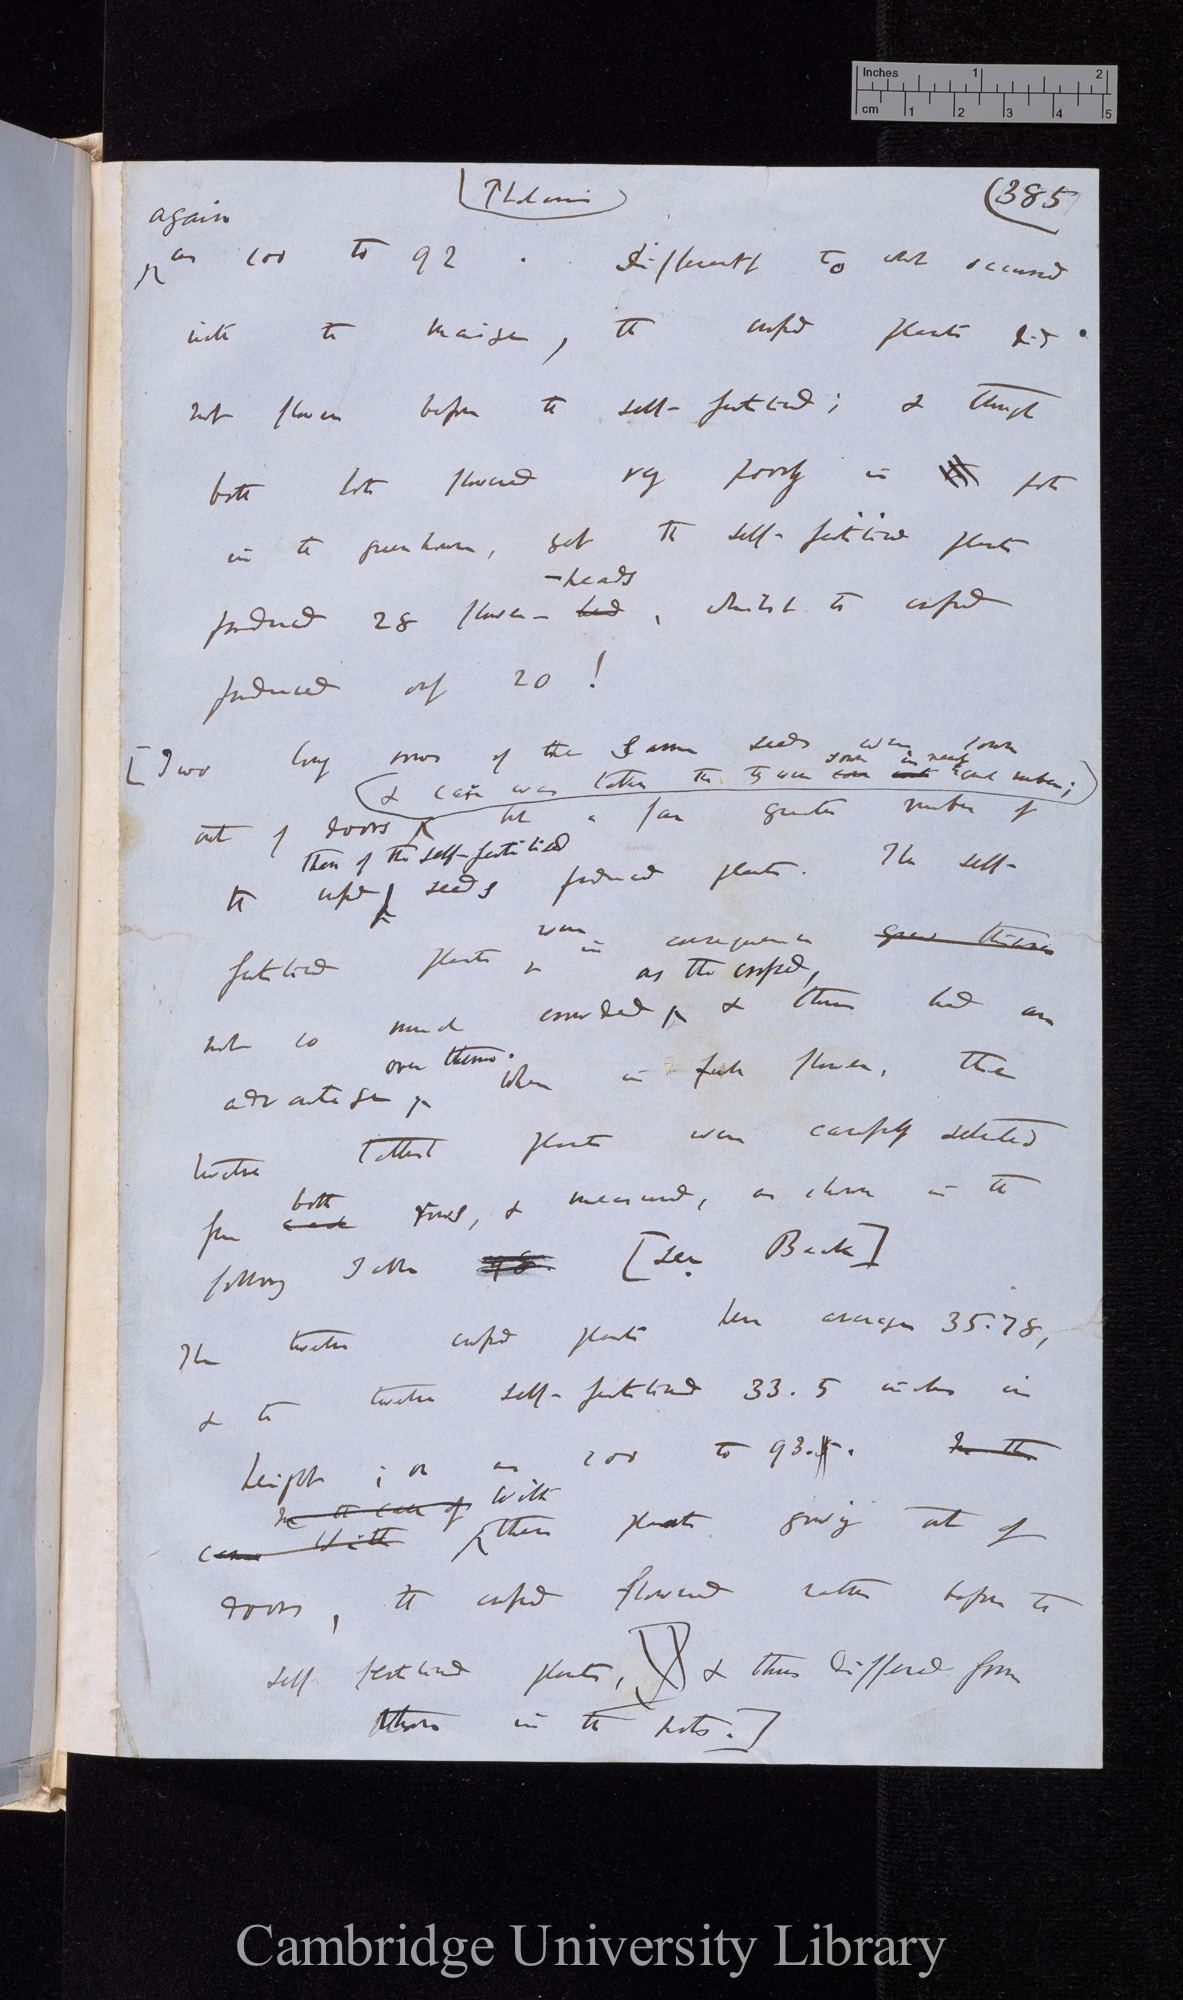 Inches 1 2
cm 1 2 3 4 5
(Phalaris)
(385
again
as 100 to 92. Differently to what occurred
with the maize, the crossed plants did
not flower before the self-fertilised; & though
both lots flowered very poorly in pots
in the greenhouse, yet the self-fertilised plants
-heads
produced 28 flower- head, whilst the crossed
produced only 20!
[Two long rows of the same seeds were sown
(& care was taken that they were sown in nearly equal number;)
out of doors but a far greater number of
than of the self-fertilised
the crossed seeds produced plants. The self-
were
fertilised plants in consequence grew thinner
as the crossed,
not so much crowded & thus had an
over them.
advantage When in full flower, the
twelve tallest plants were carefully selected
both
from each rows, & measured, as shown in the
following Table 98. [see Back]
The twelve crossed plants here average 35.78,
& the twelve self-fertilised 33.5 inches in
height; or as 100 to 93.5. In the
In the case of With
case With these plants growing out of
doors, the crossed flowered rather before the
self fertilised plants, & thus differed from
those in the pots.]
Cambridge University Library